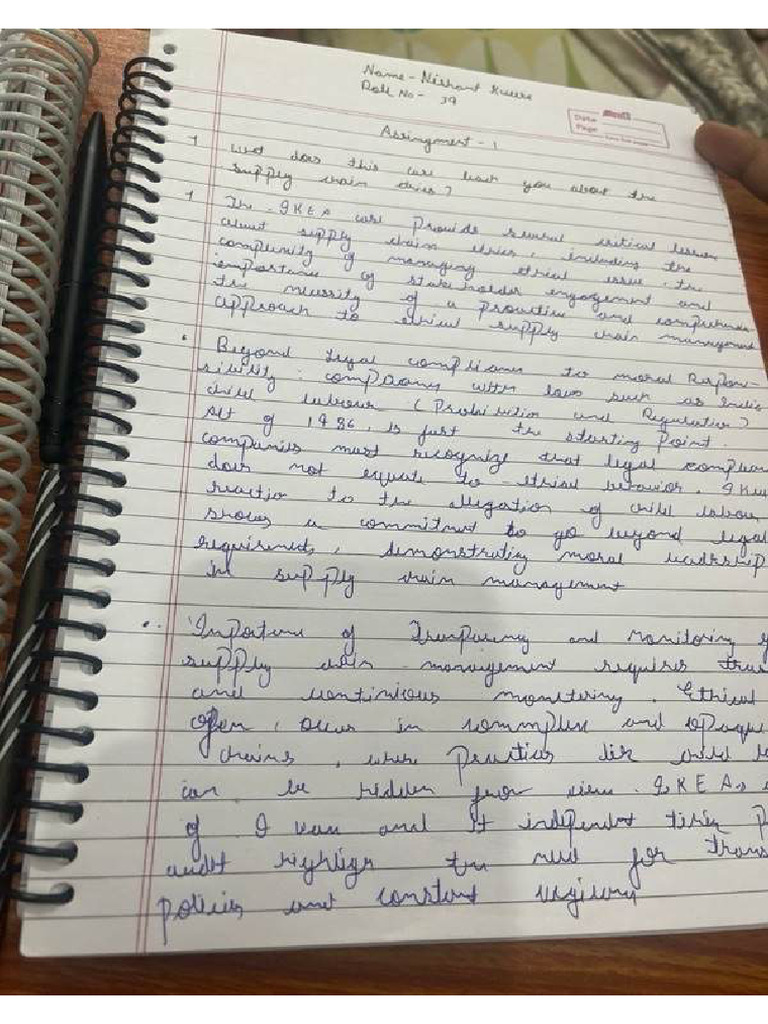 Name - Nishant
Roll No - 39
Date:
Page:
Assingment - 1
What does this case teach you about the
supply chain ethics?
The IKEA case provide several critical lesson
about supply chain ethics, including the
complexity of managing ethical issue, the
importance of stakeholder engagement and
the necessity of a proactive and comprehensive
approach to ethical supply chain management
Beyond legal compliance to moral Respon-
sibility: compaany with laws such as India
child labour (Prohibition and Regulation)
Act of 1986, is just the starting Point.
companies must recognize that legal complian
does not equate to ethical behavior. IKea
reaction to the allegation of child labour
shows a commitment to go beyond legal
requirements, demonstrating moral leadership
in supply chain management
Importance of Transparency and monitoring
supply chain management requires
and continious monetering. Ethical
often, occur in commplex and opaque
chains, where practices like child
can be hidden from view. IKEA,s
of I way and It independent third
audit highligh the need for
policies and constant